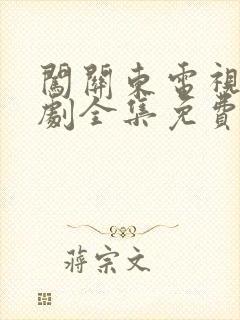 闖關東電視
劇全集免費
蔣宗文